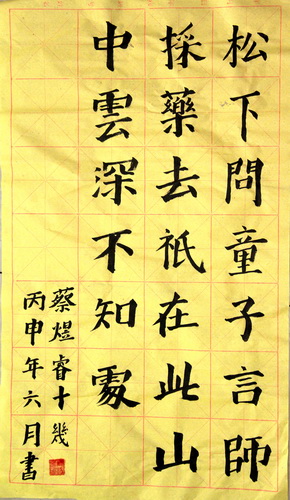 松下問童子言師
採藥去祇在此山
中雲深不知處
蔡煜睿十幾
丙申年六月書